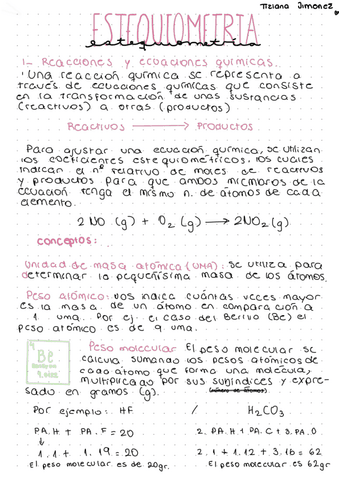 Tiziana Jimenez
ESTEQUIOMETRIA
estequiometria
1.- Reacciones y ecuaciones químicas.
Una reacción química se representa a
través de ecuaciones químicas que consiste
en la transformación de unas sustancias
(reactivos) a otras (productos)
Reactivos → Productos
Para ajustar una ecuación química, se utilizan
los coeficientes estequiométricos, los cuales
indican el nº relativo de moles de reactivos
y productos para que ambos miembros de la
ecuación tenga el mismo n. de átomos de cada
elemento.
2 NO (g) + O₂ (g) → 2NO₂ (g)
conceptos:
Unidad de masa atómica (UMA): Se utiliza para
determinar la pequeñísima masa de los átomos.
Peso atómico: nos indica cuántas veces mayor
es la masa de un átomo en comparación a
1 uma. Por ej. el caso del Berilio (Be) el
peso atómico es de 9 uma.
Be
Peso molecular El peso molecular se
calcula sumando los pesos atómicos de
cada átomo que forma una molécula,
multiplicado por sus subíndices y expre-
sado en gramos (g).
(número de átomos)
Por ejemplo: HF / H₂CO₃
PA.H + PA.F = 20
2. PA.H + PA.C + 3.PA.O
↓
1.1 + 1.19 = 20
2.1 + 1.12 + 3.16 = 62
El peso molecular es de 20gr.
El peso molecular es 62gr